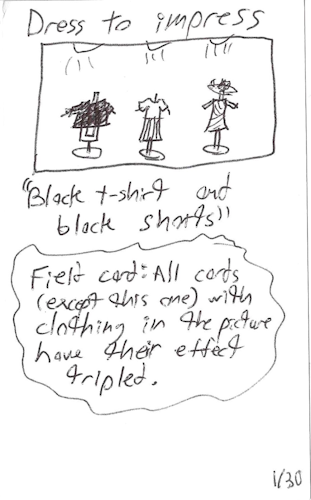 Dress to impress
"Black t-shirt and
black shorts"
Field card: All cards
(except this one) with
clothing in the picture
have their effect
tripled.
1/30